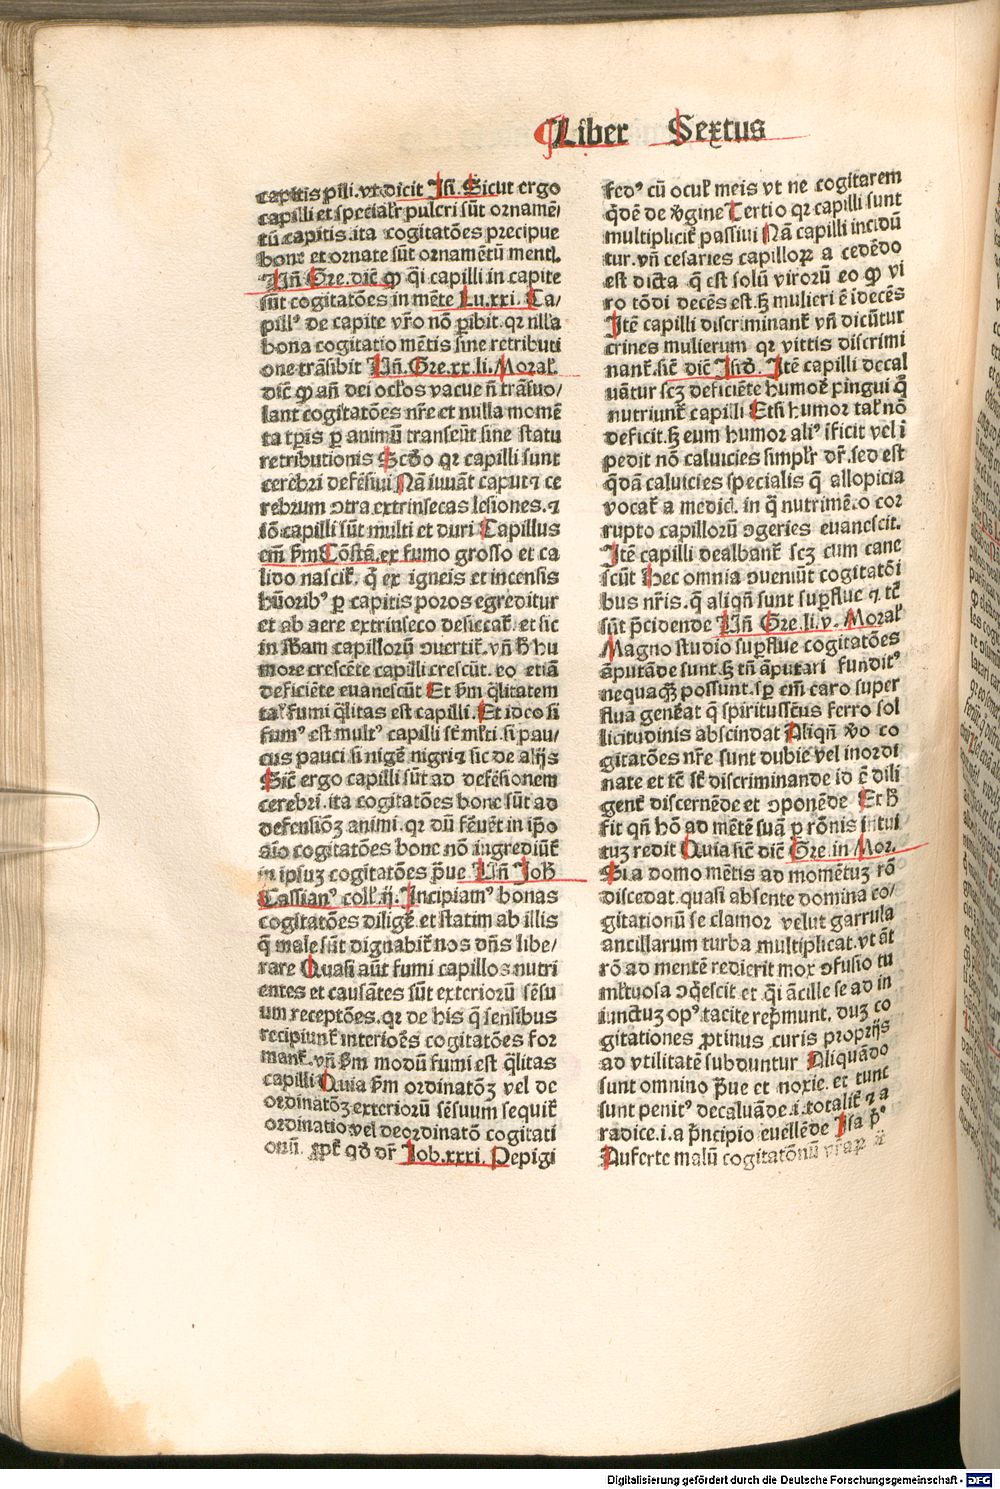 Liber Sextus
capitis pili. vt dicit Isi. Sicut ergo
capilli et specialr̄ pulcri sūt ornamē/
tū capitis. ita cogitatōes precipue
bone et ornate sūt ornamētū mentꝭ.
Uñ Gre. dic̄ ꝙ q̄i capilli in capite
sūt cogitatōes in mēte Lu.xxi. Ca/
pillꝰ de capite vr̄o nō ꝑibit. qꝛ nulla
bona cogitatio mētis sine retributi
one trāsibit Uñ. Gre.xx.li. Moral̄.
dic̄ ꝙ añ dei ocl̄os vacue n̄ trāsuo/
lant cogitatōes nr̄e et nulla momē
ta tꝑis ꝑ animū transeūt sine statu
retributionis Scd̄o qꝛ capilli sunt
cerebri defēsiui Nā iuuāt caput ⁊ ce
rebrum ꝯtra extrinsecas lesiones. ⁊
iō capilli sūt multi et duri Capillus
em̄ ẜm Cōstā. ex fumo grosso et ca
lido nascit̄. q̄ ex igneis et incensis
hūoribꝰ ꝑ capitis poros egreditur
et ab aere extrinseco desiccat̄. et sic
in sb̄am capillorū ꝯuertit̄. vñ ẜm hu
more crescēte capilli crescūt. eo etiā
deficiēte euanescūt Et ẜm q̄litatem
tal̄ fumi q̄litas est capilli. Et ideo si
fumꝰ est multꝰ capilli sūt ml̄ti. si pau/
cus pauci. si nigē nigri ⁊ sic de alijs
Sic̄ ergo capilli sūt ad defēsionem
cerebri. ita cogitatōes bone sūt ad
defensiōꝫ animi. qꝛ dū feruēt in ip̄o
aīo cogitatōes bone nō ingrediūt̄
in ipsuꝫ cogitatōes praue Uñ Joh̄
Cassianꝰ coll̄. ij. Incipiamꝰ bonas
cogitatōes diligē. et statim ab illis
q̄ male sūt dignabit̄ nos dn̄s libe/
rare Quasi aūt fumi capillos nutri
entes et causātes sūt exteriorū sēsu
um receptōes. qꝛ de his q̄ sensibus
recipiunt̄ interiores cogitatōes for
mant̄. vñ ẜm modū fumi est q̄litas
capilli Quia ẜm ordinatōꝫ vel de
ordinatōꝫ exteriorū sēsuum sequit̄
ordinatio vel deordinatō cogitati
onū. ꝓpt̄ qd̄ dr̄ Job.xxxi. Pepigi
fedꝰ cū ocul̄ meis vt ne cogitarem
q̄dē de v̄gine Tertio qꝛ capilli sunt
multiplicit̄ passiui Nā capilli incidū
tur. vñ cesaries capilloꝝ a cedēdo
est dicta q̄ est solū virorū eo ꝙ vi
ro tōdi decēs est. ꝫ mulieri ē idecēs
Itē capilli discriminant̄ vñ dicūtur
crines mulierum qꝛ vittis discrimi
nant̄. sic̄ dic̄ Isid̄. Itē capilli decal
uātur scꝫ deficiēte humore pingui q̄
nutriunt̄ capilli Etsi humor tal̄ nō
deficit. ꝫ eum humor aliꝰ īficit vel ī
pedit nō caluicies simpl̄r dr̄. sed est
q̄dā caluicies specialis q̄ allopicia
vocat̄ a medic̄. in q̄ nutrimēto cor
rupto capillorū ꝯgeries euanescit.
Itē capilli dealbant̄ scꝫ cum cane
scūt Hec omnia ꝯueniūt cogitatōi
bus nr̄is. q̄ aliqñ sunt supflue ⁊ tc̄
sūt p̄cidende Uñ Gre.li.v. Moral̄
Magno studio suꝑflue cogitatōes
āputāde sunt. ꝫ tn̄ āputari funditꝰ
nequaqꝫ possunt. sꝑ em̄ caro super
flua generat q̄ spiritussctūs ferro sol
licitudinis abscindat Aliqñ v̄o co
gitatōes nr̄e sunt dubie vel inordi
nate et tc̄ st̄ discriminande id ē dili
gent̄ discernēde et ꝯponēde Et h̄
fit qñ hō ad mētē suā ꝑ rōnis intui/
tuꝫ redit Quia sic̄ dic̄ Gre. in Mor.
Si a domo mētis ad momētuꝫ rō
discedat. quasi absente domina co/
gitationū se clamor velut garrula
ancillarum turba multiplicat. vt āt
rō ad mentē redierit mox ꝯfusio tu
ml̄tuosa ꝯq̄escit et q̄i ācille se ad in
iunctuꝫ opꝰ tacite rep̄munt. duꝫ co
gitationes ꝓtinus curis proprijs
ad vtilitatē subduntur Aliquādo
sunt omnino praue et noxie. et tunc
sunt penitꝰ decaluāde .i. totalit̄ ⁊ a
radice .i. a p̄ncipio euellēde Isa pº
Auferte malū cogitatōnū vr̄aꝝ
Digitalisierung gefördert durch die Deutsche Forschungsgemeinschaft - DFG